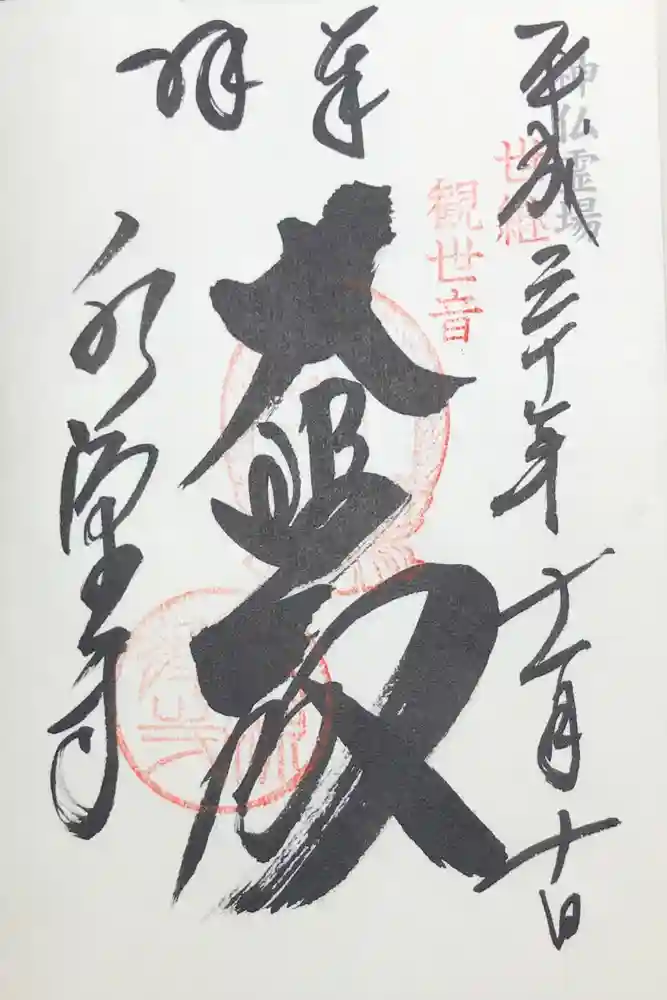 神仏霊場
平成三十年十一月十日
世継
観世音
奉拝
大悲殿
永源寺